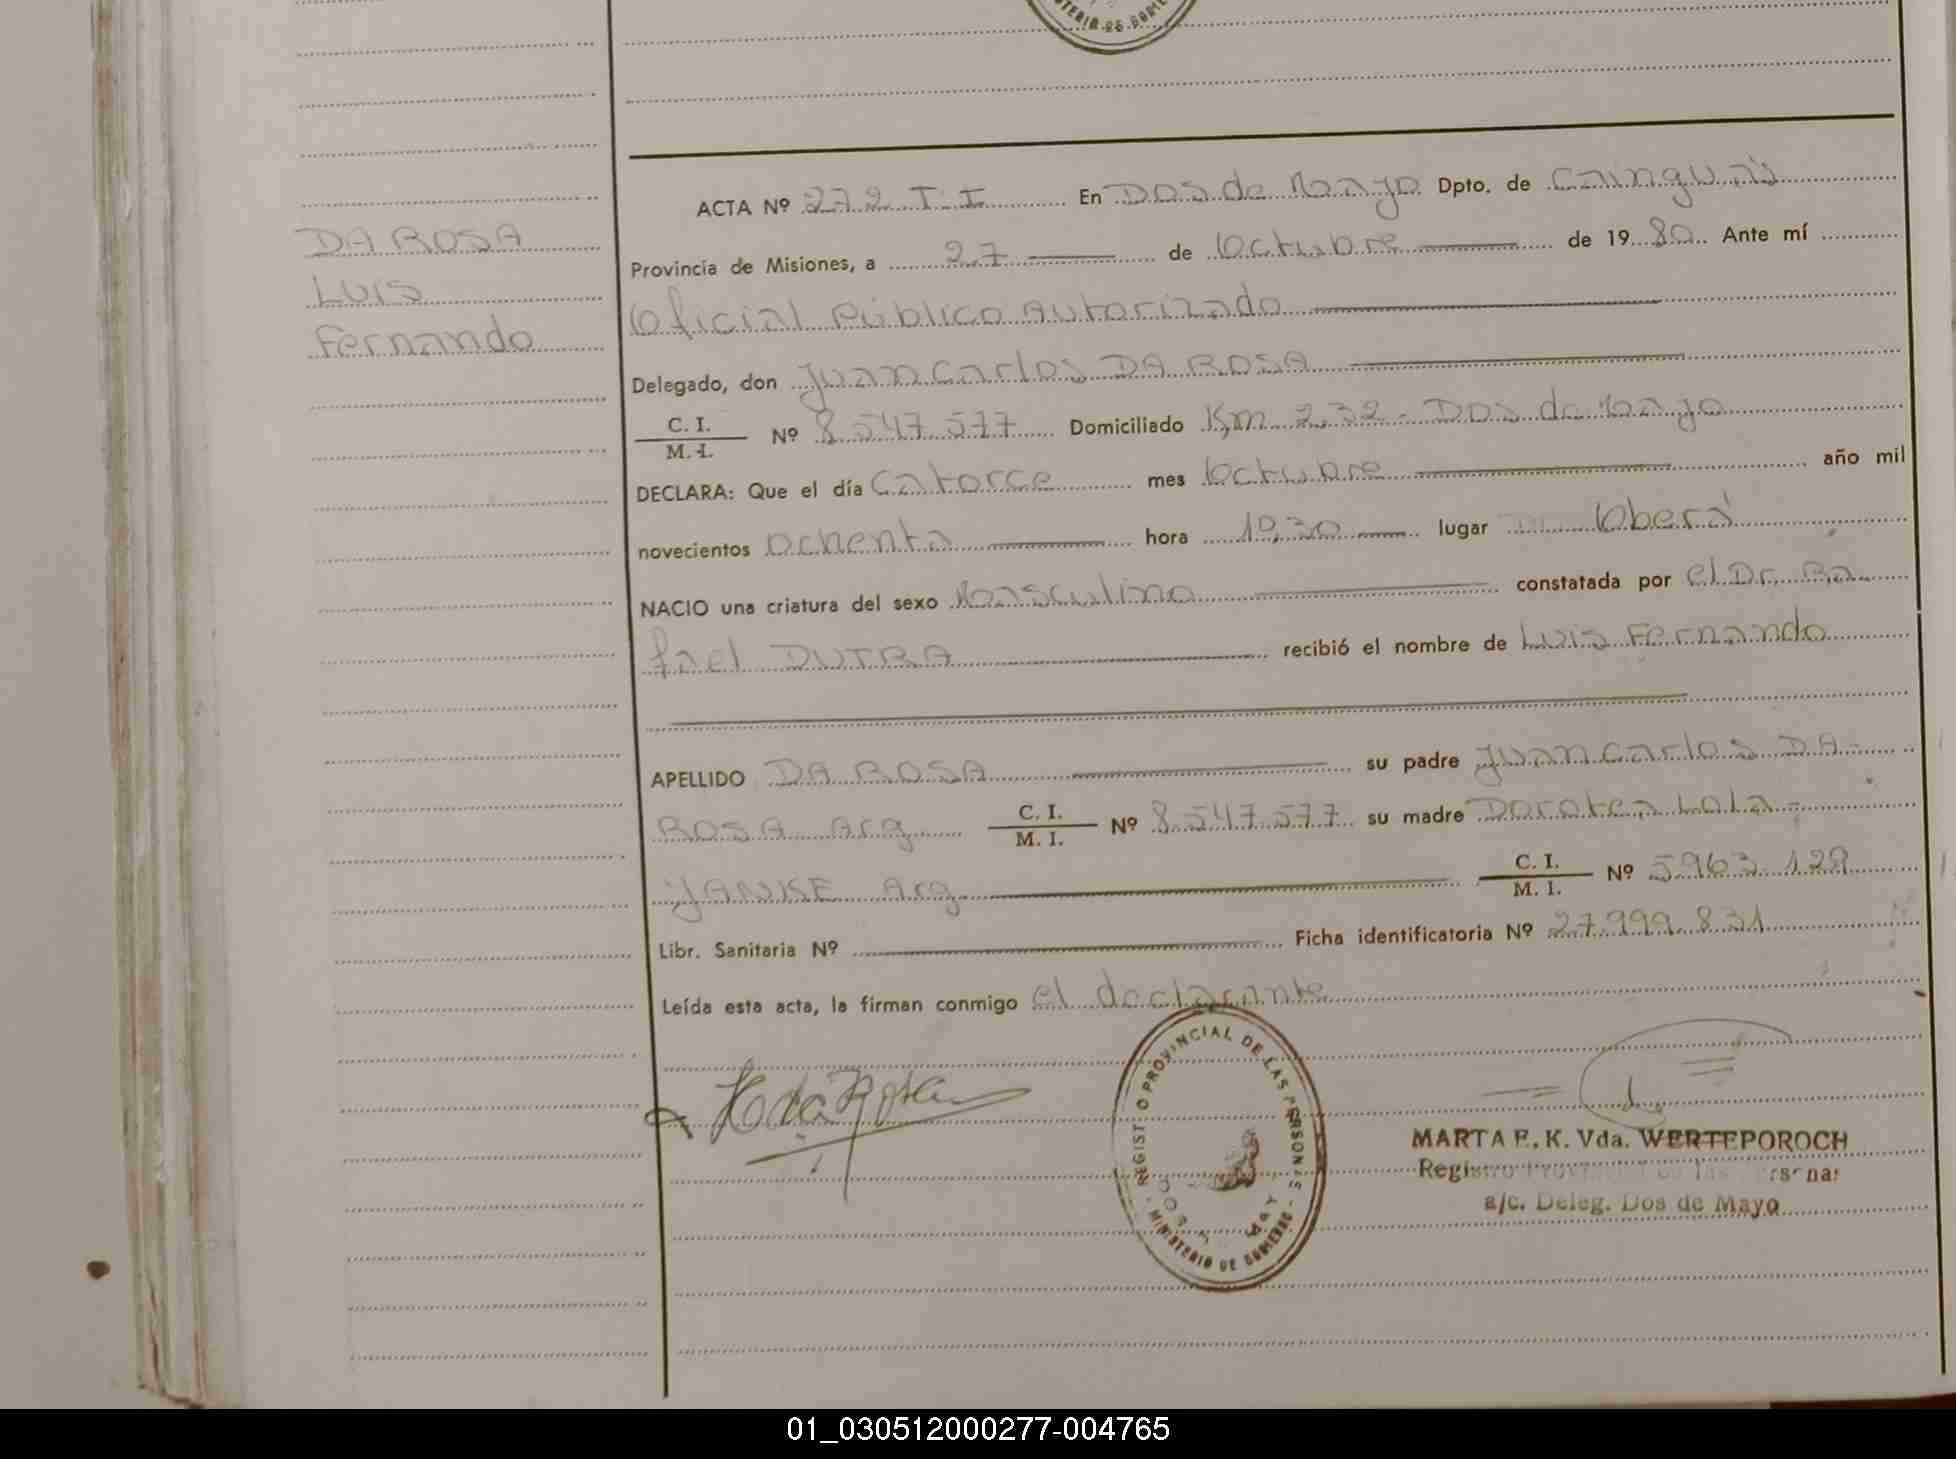 MINISTERIO DE GOBIE
ACTA Nº 272 T.I En Dos de Mayo Dpto. de Cainguás
DA ROSA
Provincia de Misiones, a 27 de Octubre de 1980 Ante mí
LUIS
Oficial Público Autorizado
Fernando
Delegado, don Juan Carlos DA ROSA
C. I.
M. I. Nº 8.547.577 Domiciliado Km 232 - Dos de Mayo
DECLARA: Que el día Catorce mes Octubre año mil
novecientos Ochenta hora 19,30 lugar Oberá
NACIO una criatura del sexo Masculino constatada por el Dr. Ra
fael DUTRA recibió el nombre de Luis Fernando
APELLIDO DA ROSA su padre Juan Carlos DA
ROSA Arg C. I. M. I. Nº 8.547.577 su madre Dorotea Lola -
YANKE Arg. C. I. M. I. Nº 5.963.129
Libr. Sanitaria Nº Ficha identificatoria Nº 27.999.831
Leída esta acta, la firman conmigo el declarante
REGISTRO PROVINCIAL DE LAS PERSONAS
MINISTERIO DE GOBIERNO
MARTA E. K. Vda. WERTEPOROCH
Registro Provincial de las Personas
a/c. Deleg. Dos de Mayo
01_030512000277-004765